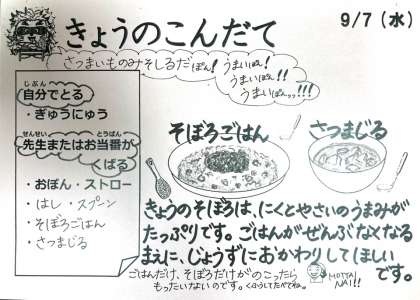 きょうのこんだて
9/7（水）
さつまいものみそしるだぽん！ うまいぽん！
うまいぽん！！
うまいぽんッッ!!!
じぶん
自分でとる
・ぎゅうにゅう
せんせい とうばん
先生またはお当番が
くばる
・おぼん・ストロー
・はし・スプーン
・そぼろごはん
・さつまじる
そぼろごはん
さつまじる
きょうのそぼろは、にくとやさいのうまみが
たっぷりです。ごはんがぜんぶなくなる
まえに、じょうずにおかわりしてほしい
です。
ごはんだけ、そぼろだけがのこったら
もったいないのです。くふうしてたべてね。
MOTTAI
NAI!!